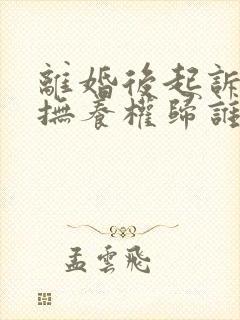 離婚後起訴
撫養權歸誰
孟雲飛